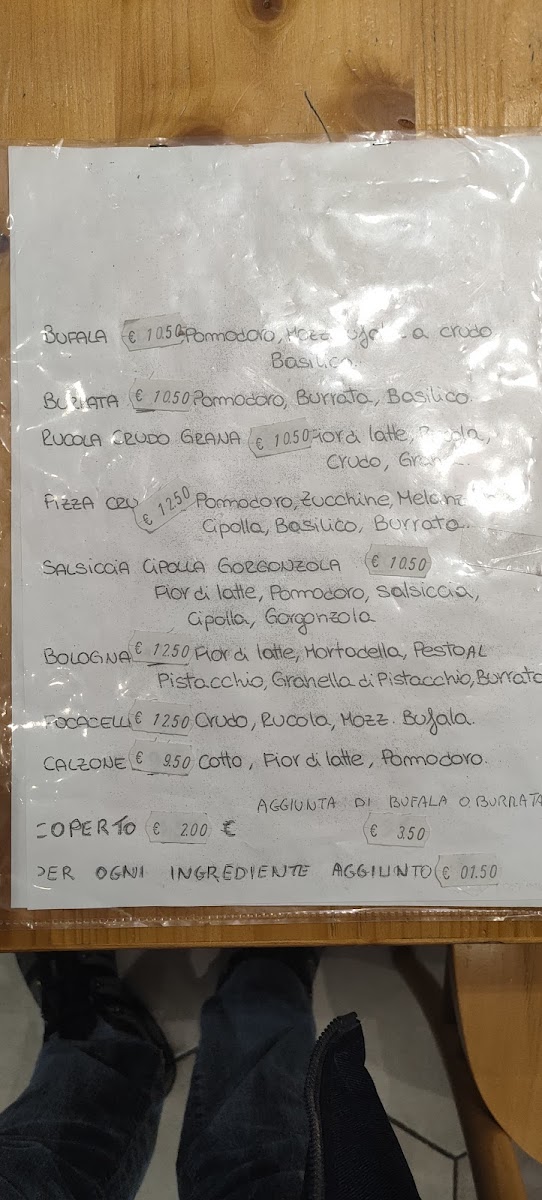 BUFALA € 10.50 Pomodoro, Mozz a crudo
Basilico
BURRATA € 10.50 Pomodoro, Burrata, Basilico.
RUCOLA CRUDO GRANA € 10.50 Fior di latte,
Crudo,
PIZZA € 12.50 Pomodoro, Zucchine,
Cipolla, Basilico, Burrata.
SALSICCIA CIPOLLA GORGONZOLA € 10.50
Fior di latte, Pomodoro, Salsiccia,
Cipolla, Gorgonzola
BOLOGNA € 12.50 Fior di latte, Mortadella, Pesto AL
Pistacchio, Granella di Pistacchio, Burrata
€ 12.50 Crudo, Rucola, Mozz. Bufala.
CALZONE € 9.50 Cotto, Fior di latte, Pomodoro.
AGGIUNTA DI BUFALA O BURRATA
COPERTO € 2.00 € € 3.50
PER OGNI INGREDIENTE AGGIUNTO € 01.50